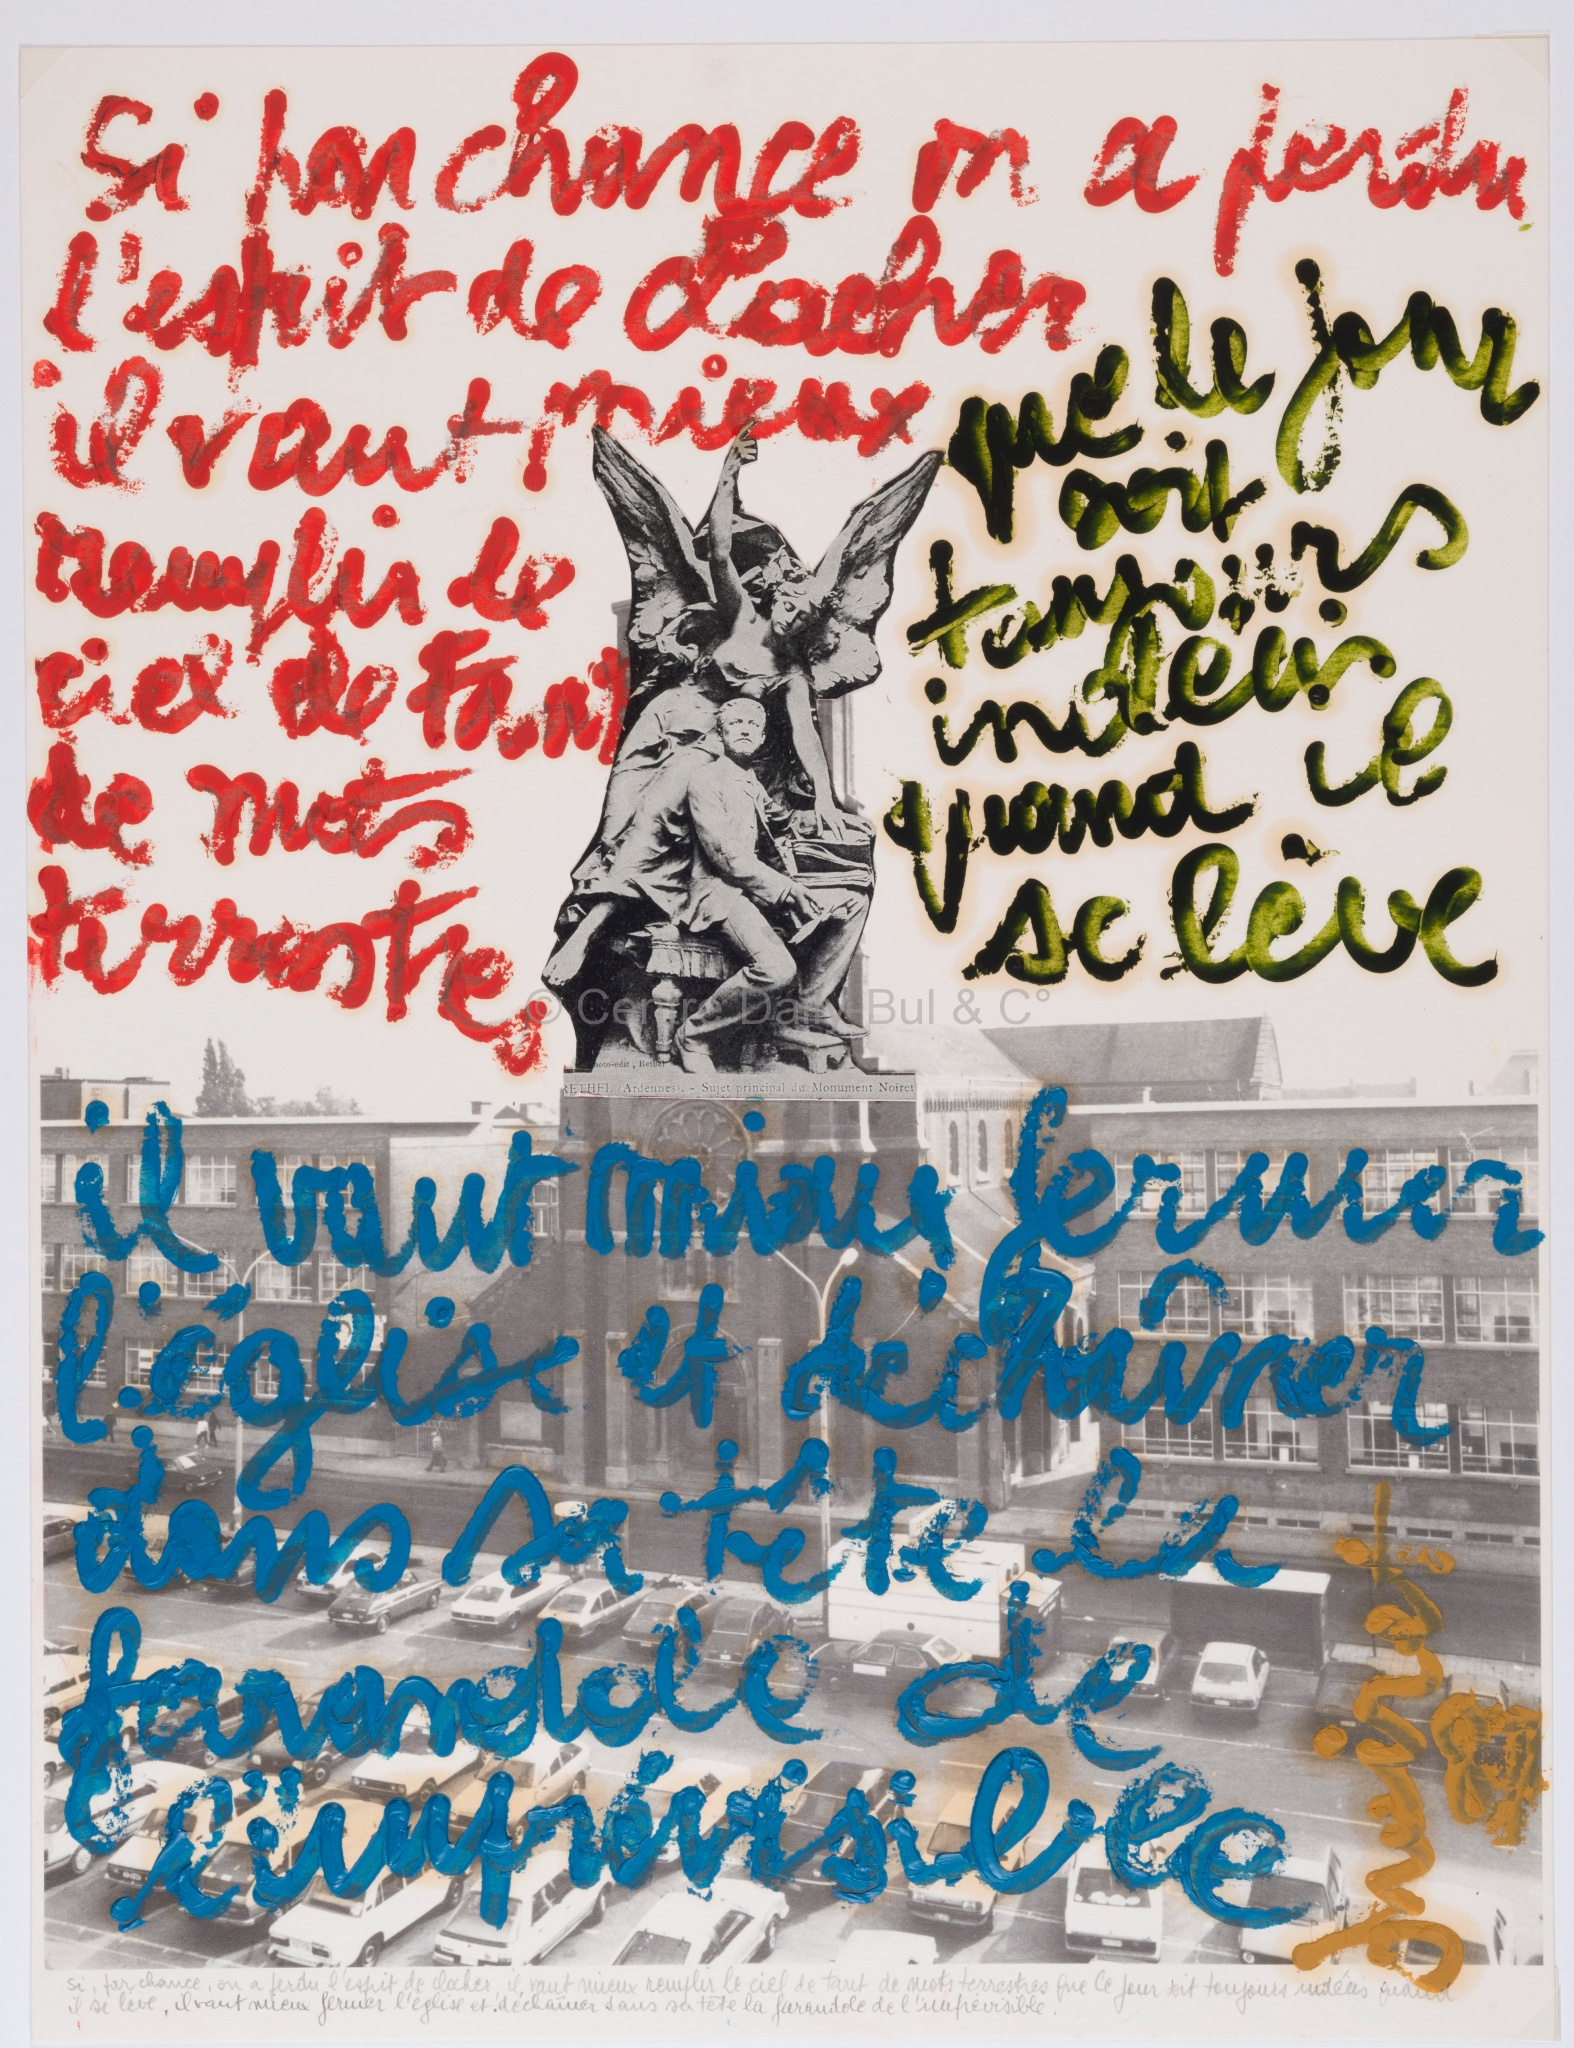 si par chance on a perdu
l'esprit de clocher
il vaut mieux
remplir le
ciel de tant
de mots
terrestres
que le jour
soit
toujours
indécis
quand il
se lève
© Centre Daily-Bul & C°
Photo-edit, Rethel
RETHEL (Ardennes). - Sujet principal du Monument Noiret
il vaut mieux fermer
l'église et déchaîner
dans sa tête la
farandole de
l'imprévisible
si, par chance, on a perdu l'esprit de clocher, il vaut mieux remplir le ciel de tant de mots terrestres que le jour soit toujours indécis quand
il se lève, il vaut mieux fermer l'église et déchaîner dans sa tête la farandole de l'imprévisible.